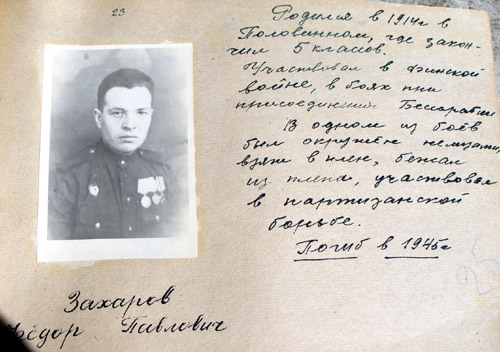 23
Родился в 1914г в
Половинном, где закон-
чил 5 класов.
Участвовал в финской
войне, в боях при
присоединение Бессарабии
В одном из боёв
был окружён немцами,
взят в плен, бежал
из плена, участвовал
в партизанской
борьбе.
Погиб в 1945г
Захаров
Фёдор Павлович